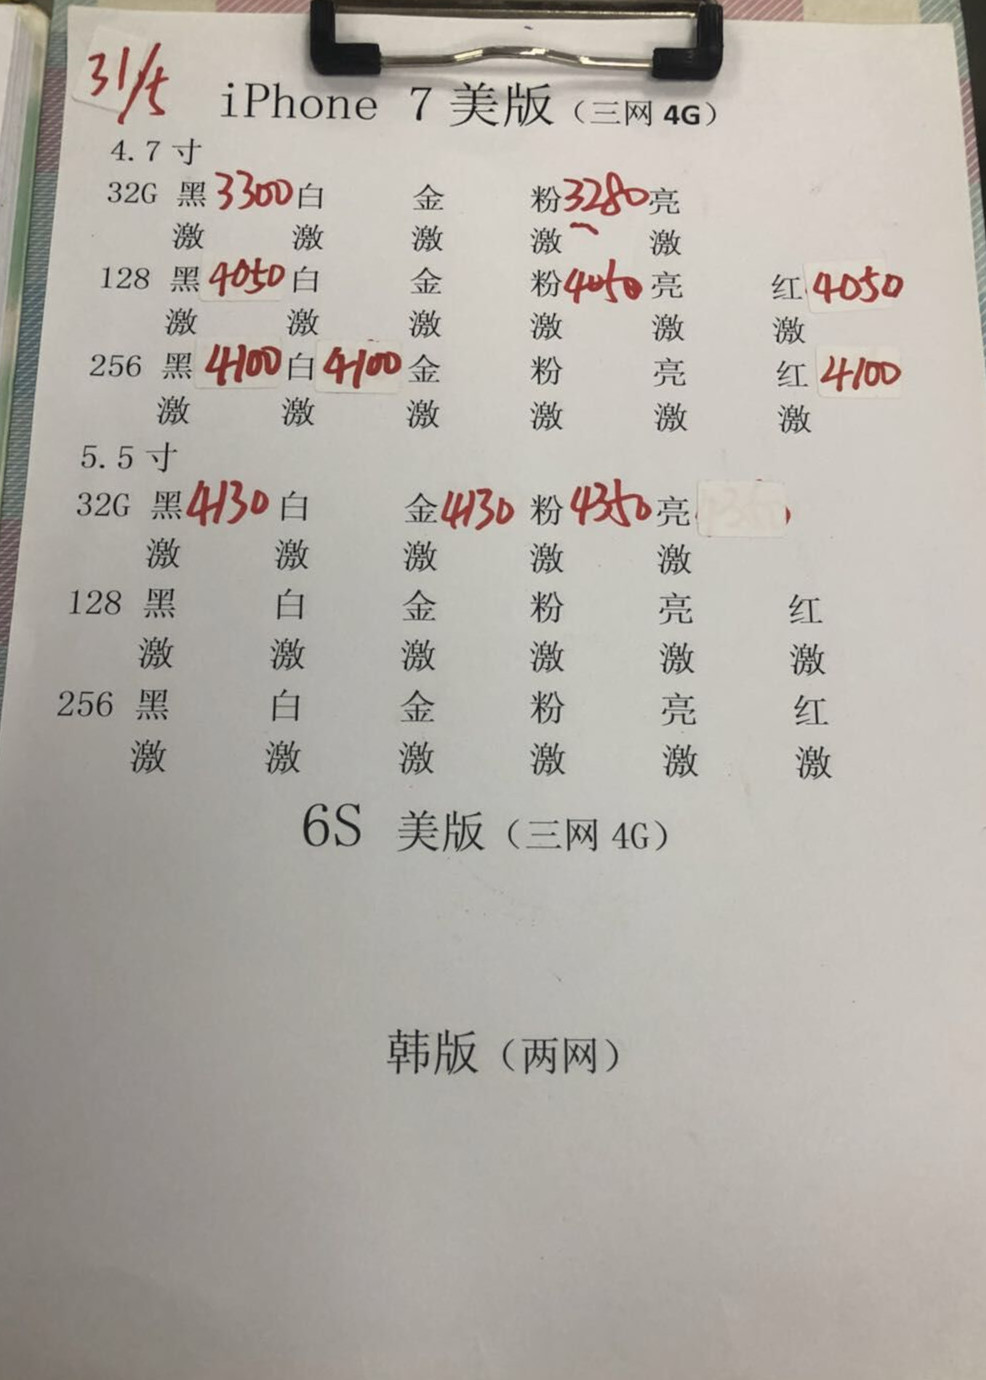 31/5
iPhone 7 美版（三网 4G）
4.7 寸
32G 黑 3300 白 金 粉 3280 亮
激 激 激 激 激
128 黑 4050 白 金 粉 4050 亮 红 4050
激 激 激 激 激 激
256 黑 4100 白 4100 金 粉 亮 红 4100
激 激 激 激 激 激
5.5 寸
32G 黑 4130 白 金 4130 粉 4350 亮
激 激 激 激 激
128 黑 白 金 粉 亮 红
激 激 激 激 激 激
256 黑 白 金 粉 亮 红
激 激 激 激 激 激
6S 美版（三网 4G）
韩版（两网）